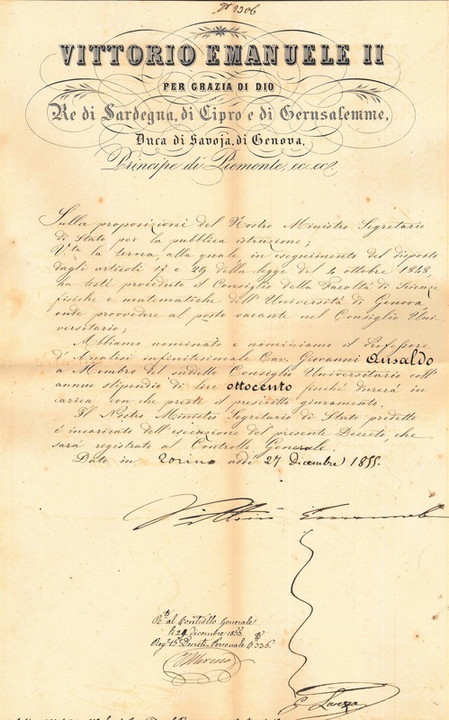 N° 2306
VITTORIO EMANUELE II
PER GRAZIA DI DIO
Re di Sardegna, di Cipro e di Gerusalemme,
Duca di Savoja, di Genova,
Principe di Piemonte, ec. ec.
Sulla proposizione del Nostro Ministro Segretario
di Stato per la pubblica istruzione;
V.ta la terna, alla quale in eseguimento del disposto
dagli articoli 13 e 29 della legge del 4 ottobre 1848,
ha testè proceduto il Consiglio della Facoltà di Scienze
fisiche e matematiche dell'Università di Genova
onde provvedere al posto vacante nel Consiglio Uni-
versitario;
Abbiamo nominato e nominiamo il Professore
d'Analisi infinitesimale Cav. Giovanni Ansaldo
a Membro del suddetto Consiglio Universitario coll'
annuo stipendio di lire ottocento finchè durerà in
carica con che presti il prescritto giuramento.
Il Nostro Ministro Segretario di Stato predetto
è incaricato dell'esecuzione del presente Decreto, che
sarà registrato al Controllo Generale.
Dato in Torino addì 27 dicembre 1855.
Vittorio Emanuele
R.to al Controllo Generale
li 29 dicembre 1855
Reg. 15 Decreti Personale 336
Moreno
G. Lanza